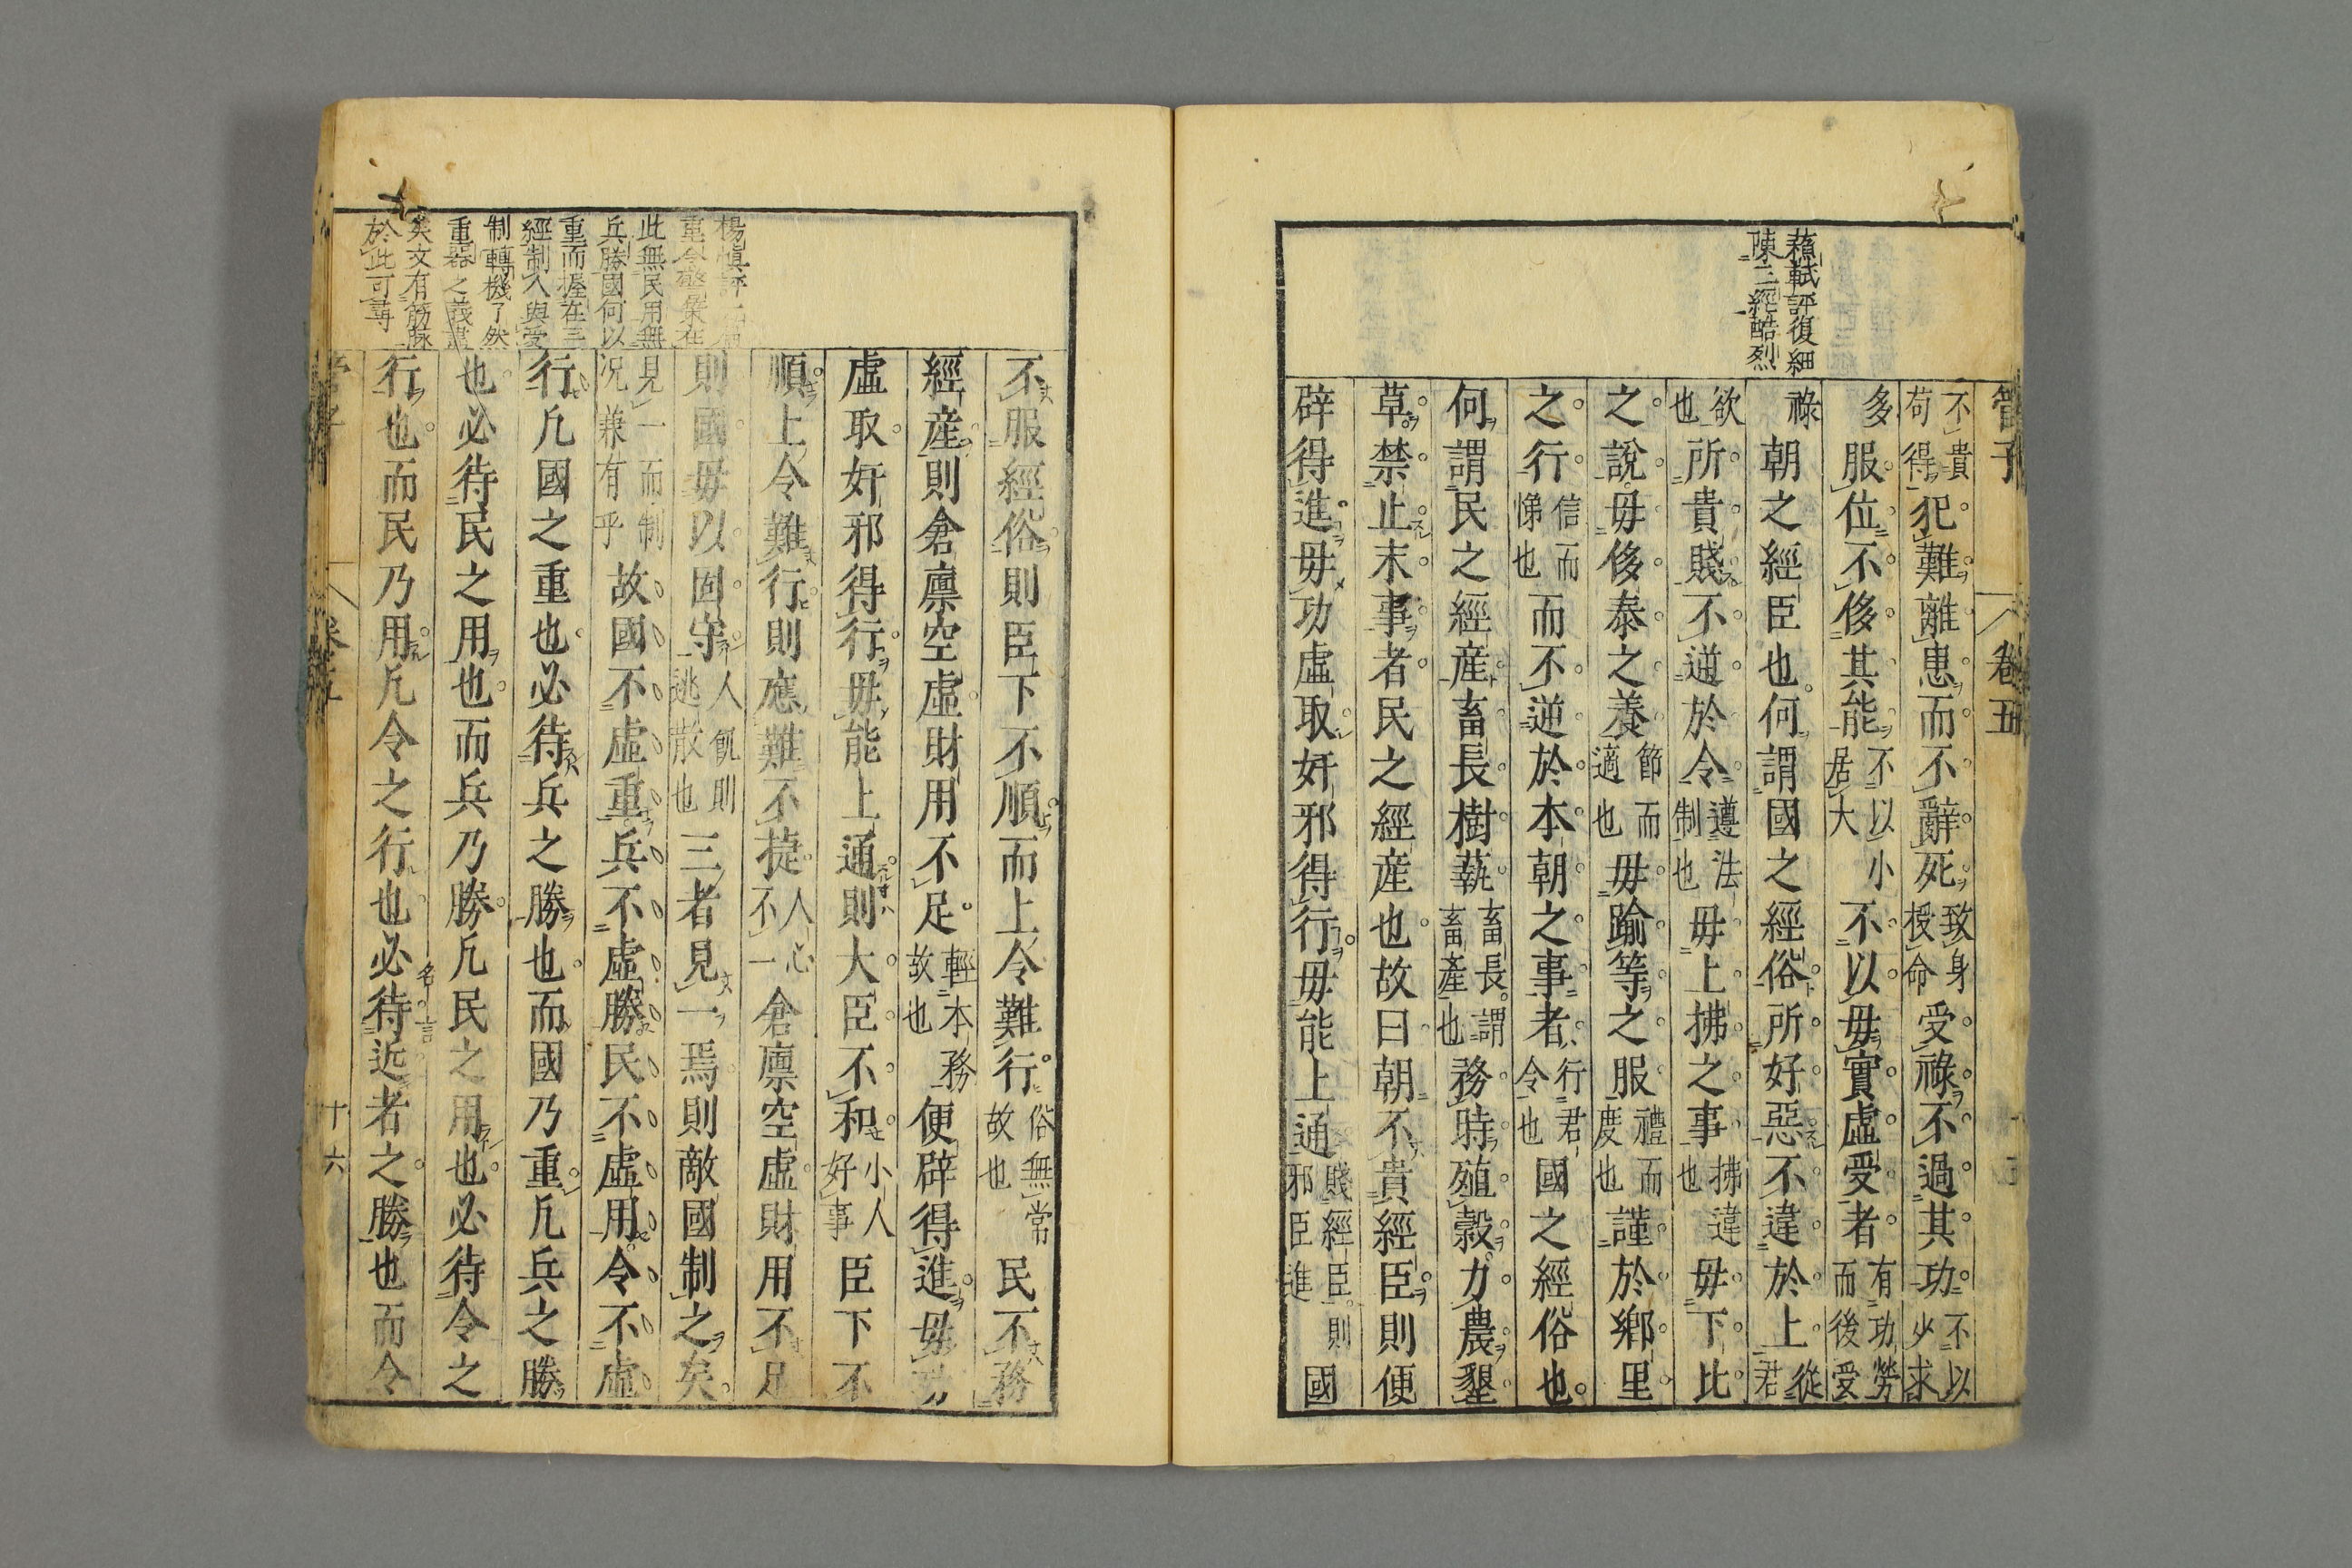 管子 卷五
不貴苟得犯難離患而不辭死致身授命受祿不過其功不以少求
多服位不侈其能不以小居大不以毋實虛受者有功勞而後受
祿朝之經臣也何謂國之經俗所好惡不違於上從君
欲也所貴賤不逆於令遵法制也毋上拂之事拂違也毋下比
之說毋侈泰之養節而適也毋踰等之服禮而度也謹於鄉里
之行信而悌也而不逆於本朝之事者行君令也國之經俗也
何謂民之經產畜長樹蓺畜長謂畜產也務時殖穀力農墾
草禁止末事者民之經產也故曰朝不貴經臣則便
辟得進毋功虛取奸邪得行毋能上通賤經臣則邪臣進國
蘇軾評復細
陳三經酷烈
不服經俗則臣下不順而上令難行俗無常故也民不務
經產則倉廩空虛財用不足輕本務故也便辟得進毋功
虛取奸邪得行毋能上通則大臣不和小人好事臣下不
順上令難行則應難不捷人心不一倉廩空虛財用不足
則國毋以固守人飢則逃散也三者見一焉則敵國制之矣
見一而制况兼有乎故國不虛重兵不虛勝民不虛用令不虛
行凡國之重也必待兵之勝也而國乃重凡兵之勝
也必待民之用也而兵乃勝凡民之用也必待令之
行也而民乃用凡令之行也必待近者之勝也而令
名言
楊慎評
重令
此無民用無
兵勝國何以
重而握在三
經制人與受
制轉機了然
重器之義
矣文有筋脉
於此可尋
管子 卷五 十六